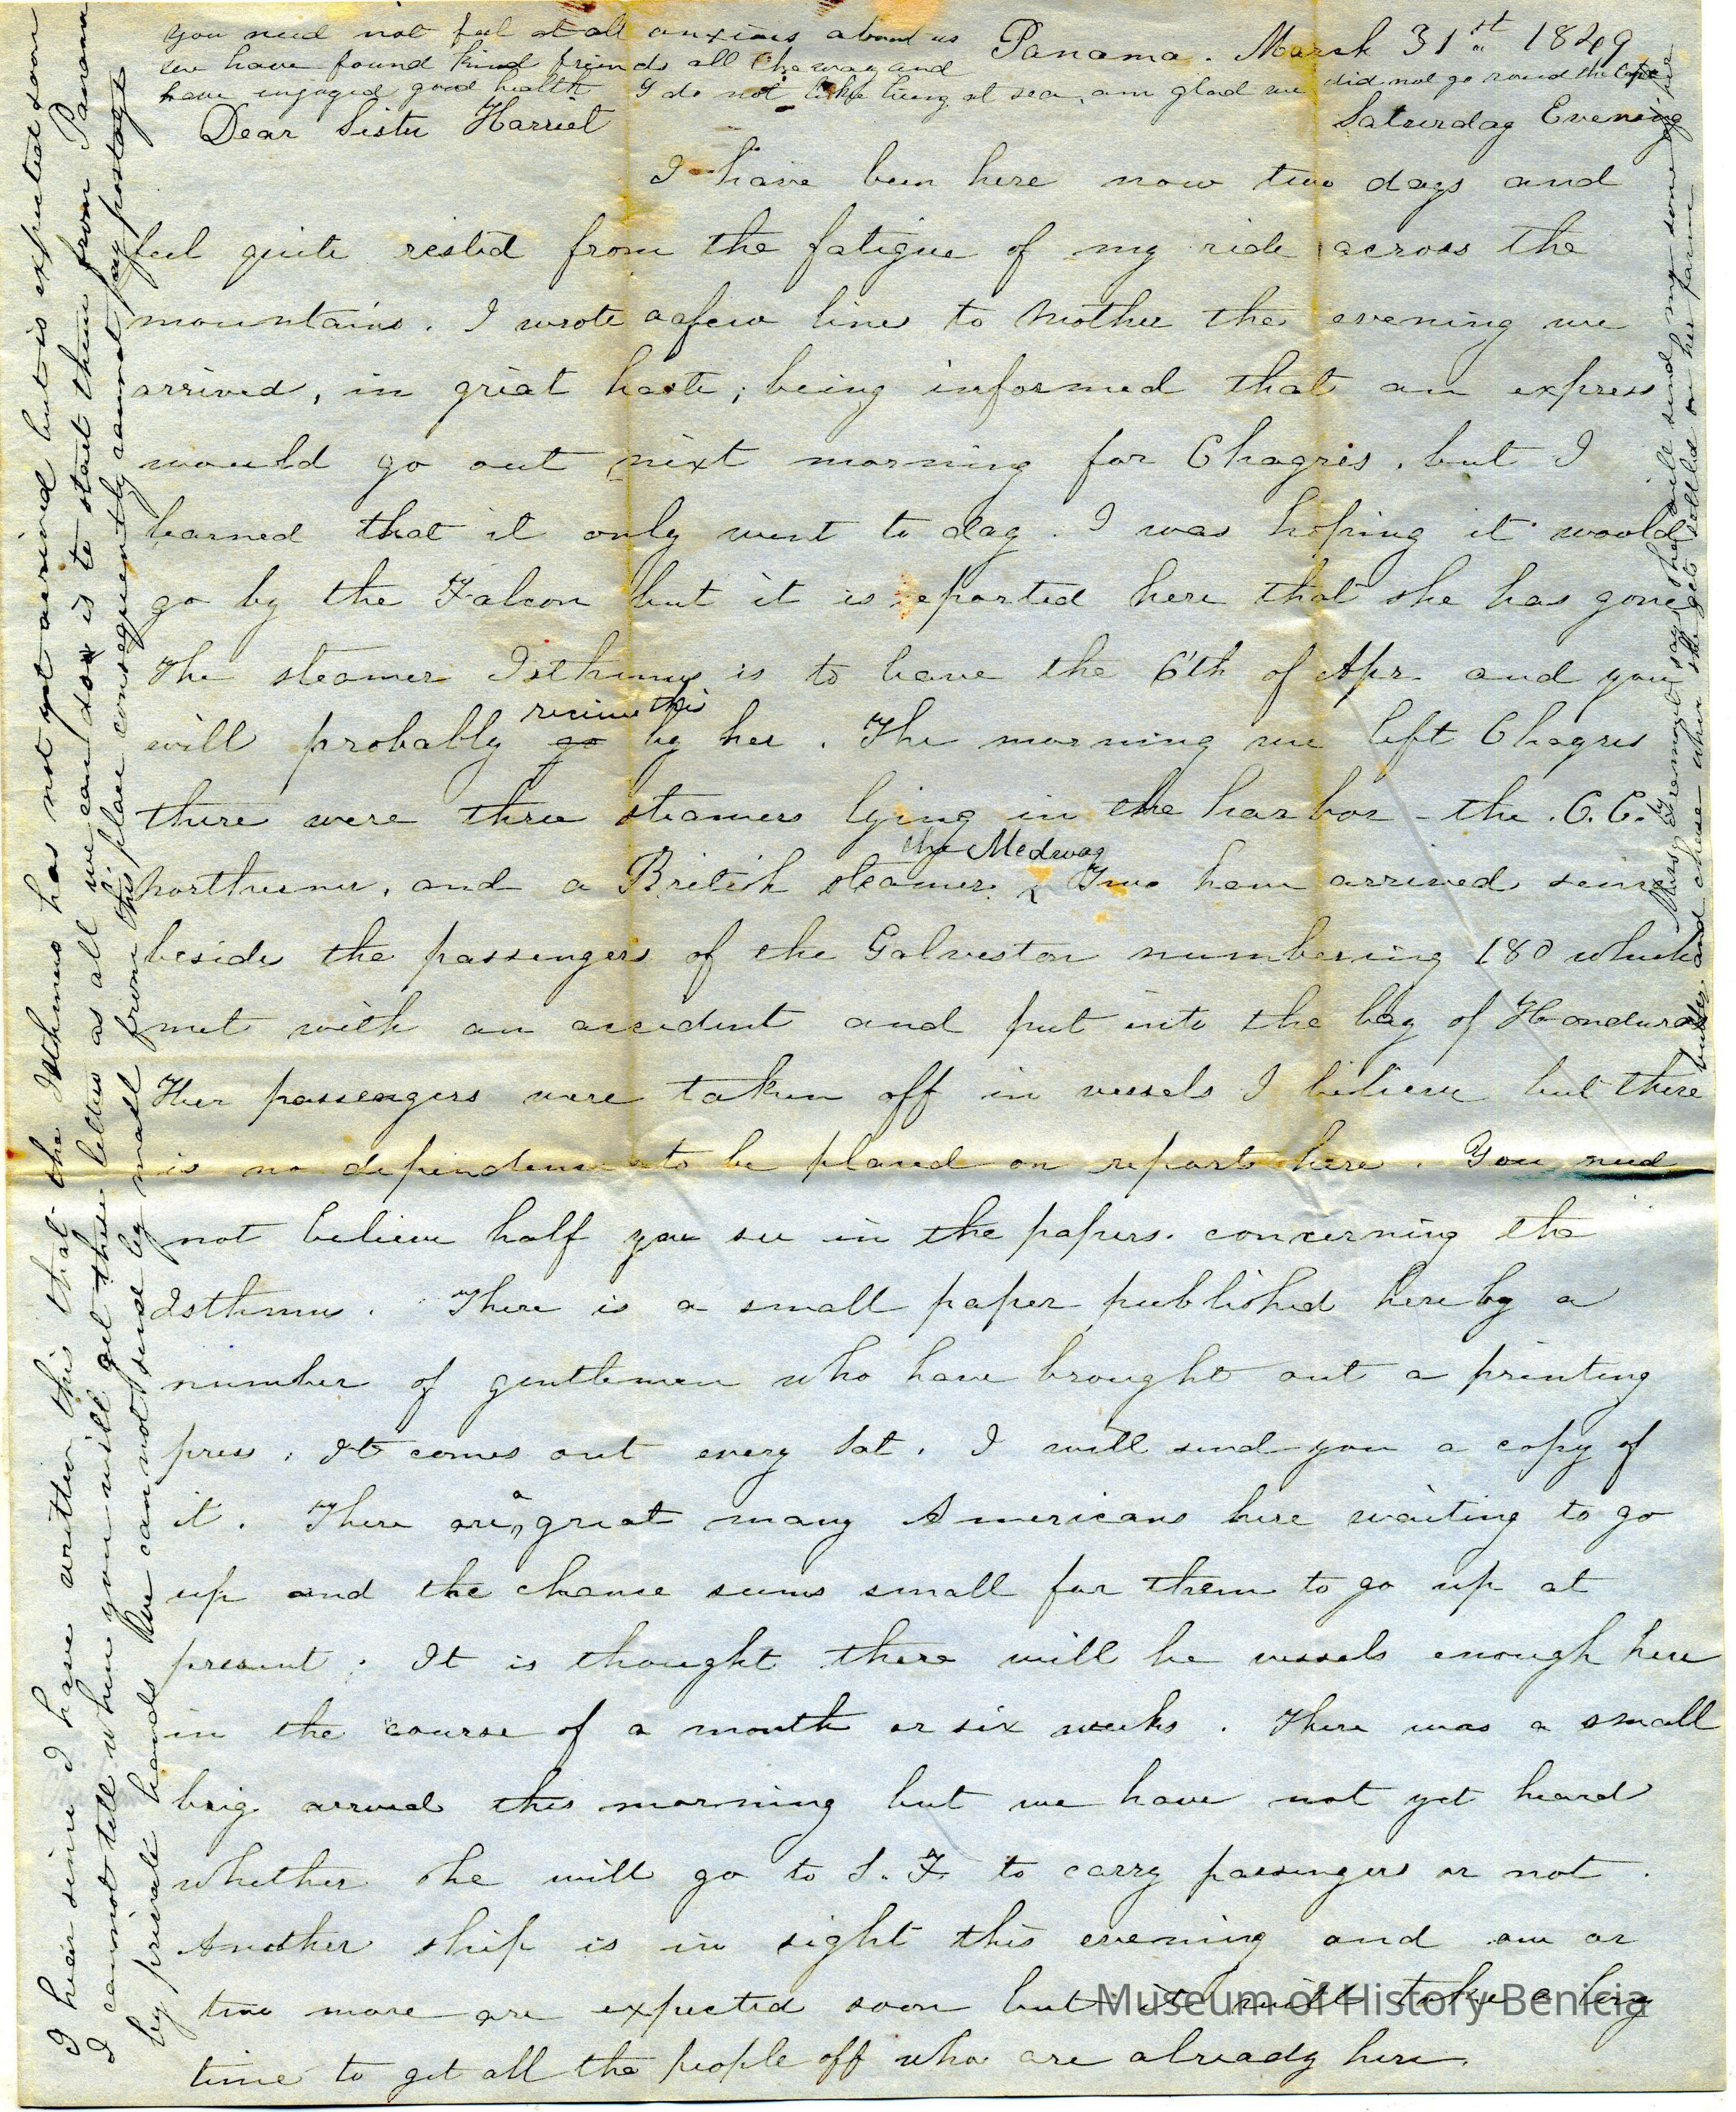 you need not feel at all anxious about us
we have found kind friends all the way and
have enjoyed good health I do not like being at sea, am glad we did not go round the Cape
Panama. March 31st 1849
Saturday Evening
Dear Sister Harriet
I have been here now two days and
feel quite rested from the fatigue of my ride across the
mountains. I wrote a few lines to Mother the evening we
arrived, in great haste; being informed that an express
would go out next morning for Chagres. but I
learned that it only went to day. I was hoping it would
go by the Falcon but it is reported here that she has gone
The steamer Isthmus is to leave the 6th of Apr and you
will probably go receive this by her. The morning we left Chagres
there were three steamers lying in the harbor - the C.C. by
northerner, and a British steamer the Medway. Two have arrived since
beside the passengers of the Galveston numbering 180 which
met with an accident and put into the bay of Honduras
Her passengers were taken off in vessels I believe but there
is no dependence to be placed on reports here. You need
not believe half you see in the papers. concerning the
Isthmus. There is a small paper published here by a
number of gentlemen who have brought out a printing
press. It comes out every Sat. I will send you a copy of
it. There are a great many Americans here waiting to go
up and the chance seems small for them to go up at
present. It is thought there will be vessels enough here
in the course of a month or six weeks. There was a small
brig arrived this morning but we have not yet heard
whether she will go to S. F. to carry passengers or not.
Another ship is in sight this evening and one or
two more are expected soon but it will take a long
time to get all the people off who are already here.
I hear since I have written this that the Isthmus has not yet arrived but is expected soon
I cannot tell when you will get these letters as all we can do is to start them from Panama
by private hands We can not send by mail from this place consequently cannot pay postage
Mrs. says she will send my some of her
butter and cheese when she gets settled on her farm
Museum of History Benicia